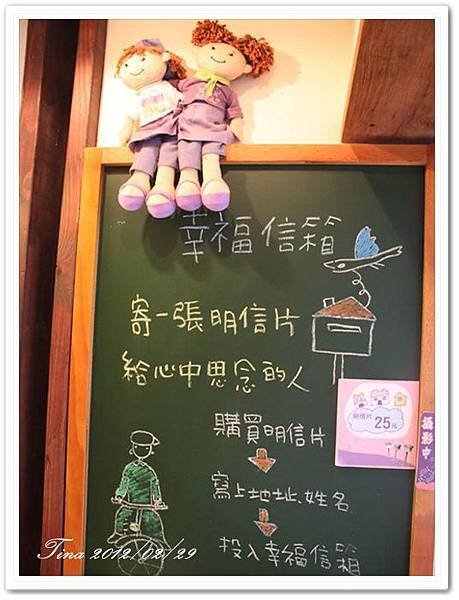 幸福信箱
寄一張明信片
給心中思念的人
購買明信片
寫上地址、姓名
投入幸福信箱
明信片
25元
攝影中
Tina 2012/02/29